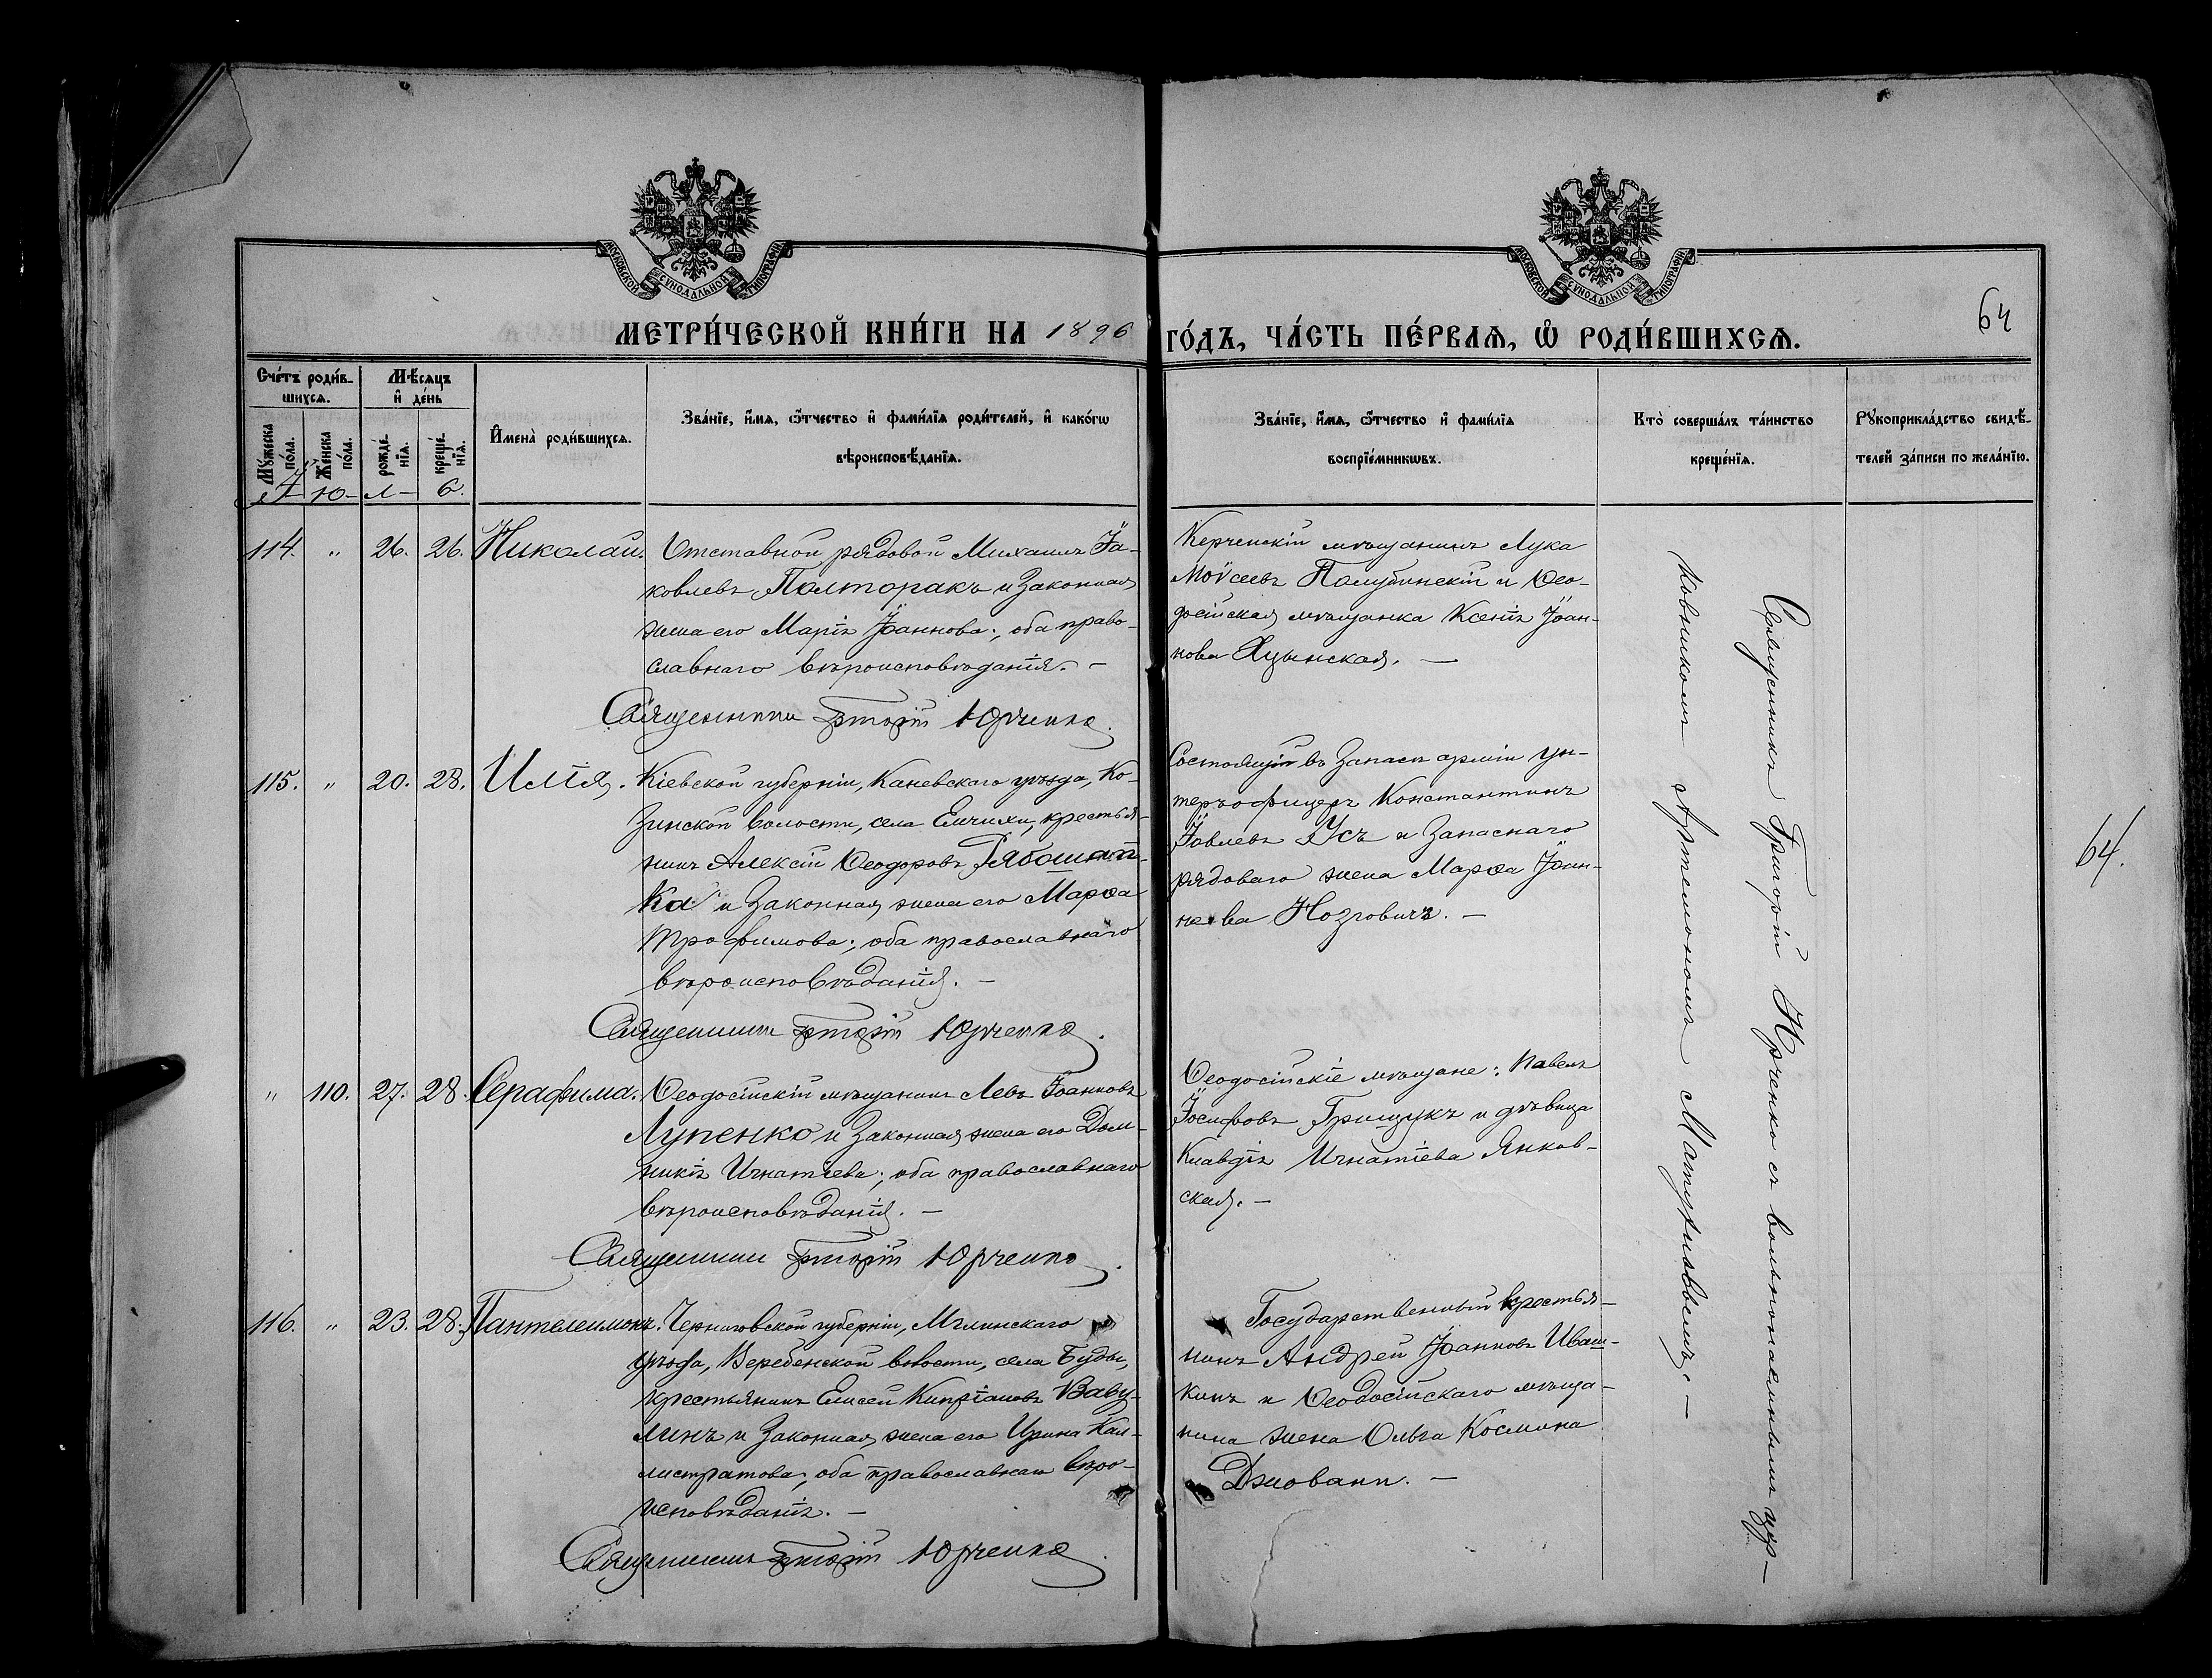 МОСКОВСКОЙ СѴНОДАЛЬНОЙ ТИПОГРАФІИ
МОСКОВСКОЙ СѴНОДАЛЬНОЙ ТИПОГРАФІИ
МЕТРИ́ЧЕСКОЙ КНИ́ГИ НА 1896
ГО́ДЪ, ЧА́СТЬ ПЕ́РВАѦ, Ѡ РОДИ́ВШИХСѦ.
64
Сче́тъ роди́в-
шихсѧ.
Мѣ́сѧцъ
и҆ де́нь
Мꙋ́жеска
по́ла.
Же́нска
по́ла.
рожде́-
нїѧ.
креще́-
нїѧ.
И҆мена̀ роди́вшихсѧ.
Зва́нїе, и҆́мѧ, ѻ҆́тчество и҆ фами́лїѧ роди́телей, и҆ како́гѡ
вѣроисповѣ́данїѧ.
Зва́нїе, и҆́мѧ, ѻ҆́тчество и҆ фами́лїѧ
воспрїе́мникѡвъ.
Кто̀ соверша́лъ та́инство
креще́нїѧ.
Рꙋкоприкла́дство свидѣ́-
телей за́писи по жела́нїю.
Ю- л- 6.
114. " 26. 26. Николай. Отставной рядовой Михаилъ Іа-
ковлевъ Полторакъ и законная
жена его Марія Іоаннова; оба право-
славнаго вѣроисповѣданія. -
Священникъ Григорій Юрченко.
Керченскій мѣщанинъ Лука
Моѵсеевъ Полубинскій и Ѳео-
досійская мѣщанка Ксенія Іоан-
нова Яцынская. -
115. " 20. 28. Илія. Кіевской губерніи, Каневскаго уѣзда, Ко-
зинской волости, села Емчихи, крестья-
нинъ Алексій Ѳеодоровъ Рябошап-
ка и законная жена его Марѳа
Трофимова; оба православнаго
вѣроисповѣданія. -
Священникъ Григорій Юрченко.
Состоящій въ запасѣ арміи ун-
теръ-офицеръ Константинъ
Іовлевъ Усъ и запаснаго
рядоваго жена Марѳа Іоан-
нова Нозговичъ. -
" 110. 27. 28. Серафима. Ѳеодосійскій мѣщанинъ Левъ Іоанновъ
Лупенко и законная жена его Дом-
никія Игнатіева; оба православнаго
вѣроисповѣданія. -
Священникъ Григорій Юрченко.
Ѳеодосійскіе мѣщане: Павелъ
Іосифовъ Грищукъ и дѣвица
Клавдія Игнатіева Янков-
ская. -
116. " 23. 28. Пантелеимонъ. Черниговской губерніи, Мглинскаго
уѣзда, Веребенской волости, села Буды,
крестьянинъ Елисей Кипріановъ Ваву-
линъ и законная жена его Ирина Кал-
листратова; оба православнаго вѣро-
исповѣданія. -
Священникъ Григорій Юрченко.
Государственный крестья-
нинъ Андрей Іоанновъ Иваш-
кинъ и Ѳеодосійскаго мѣща-
нина жена Ольга Космина
Джовани. -
Священникъ Григорій Юрченко съ вольнонаемнымъ цер-
ковникомъ Артемономъ Матушевичемъ. -
64.